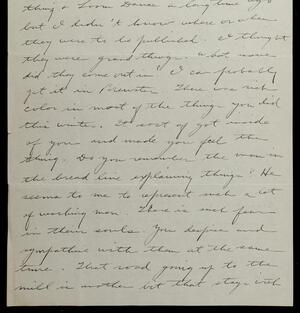 thing & Loom Dance a long time ago
but I didn't know where or when
they were to be published. I thought
they were grand things. What issue
did they come out in I can probably
get it in Brewster. There was rich
color in most of the things you did
this winter. It sort of got inside
of you and made you feel the
thing. Do you remember the man in
the bread line explaining things? He
seems to me to represent such a lot
of working men. There is such fear
in their souls. You despise and
sympathize with them at the same
time. That road going up to the
mill is another bit that stays with